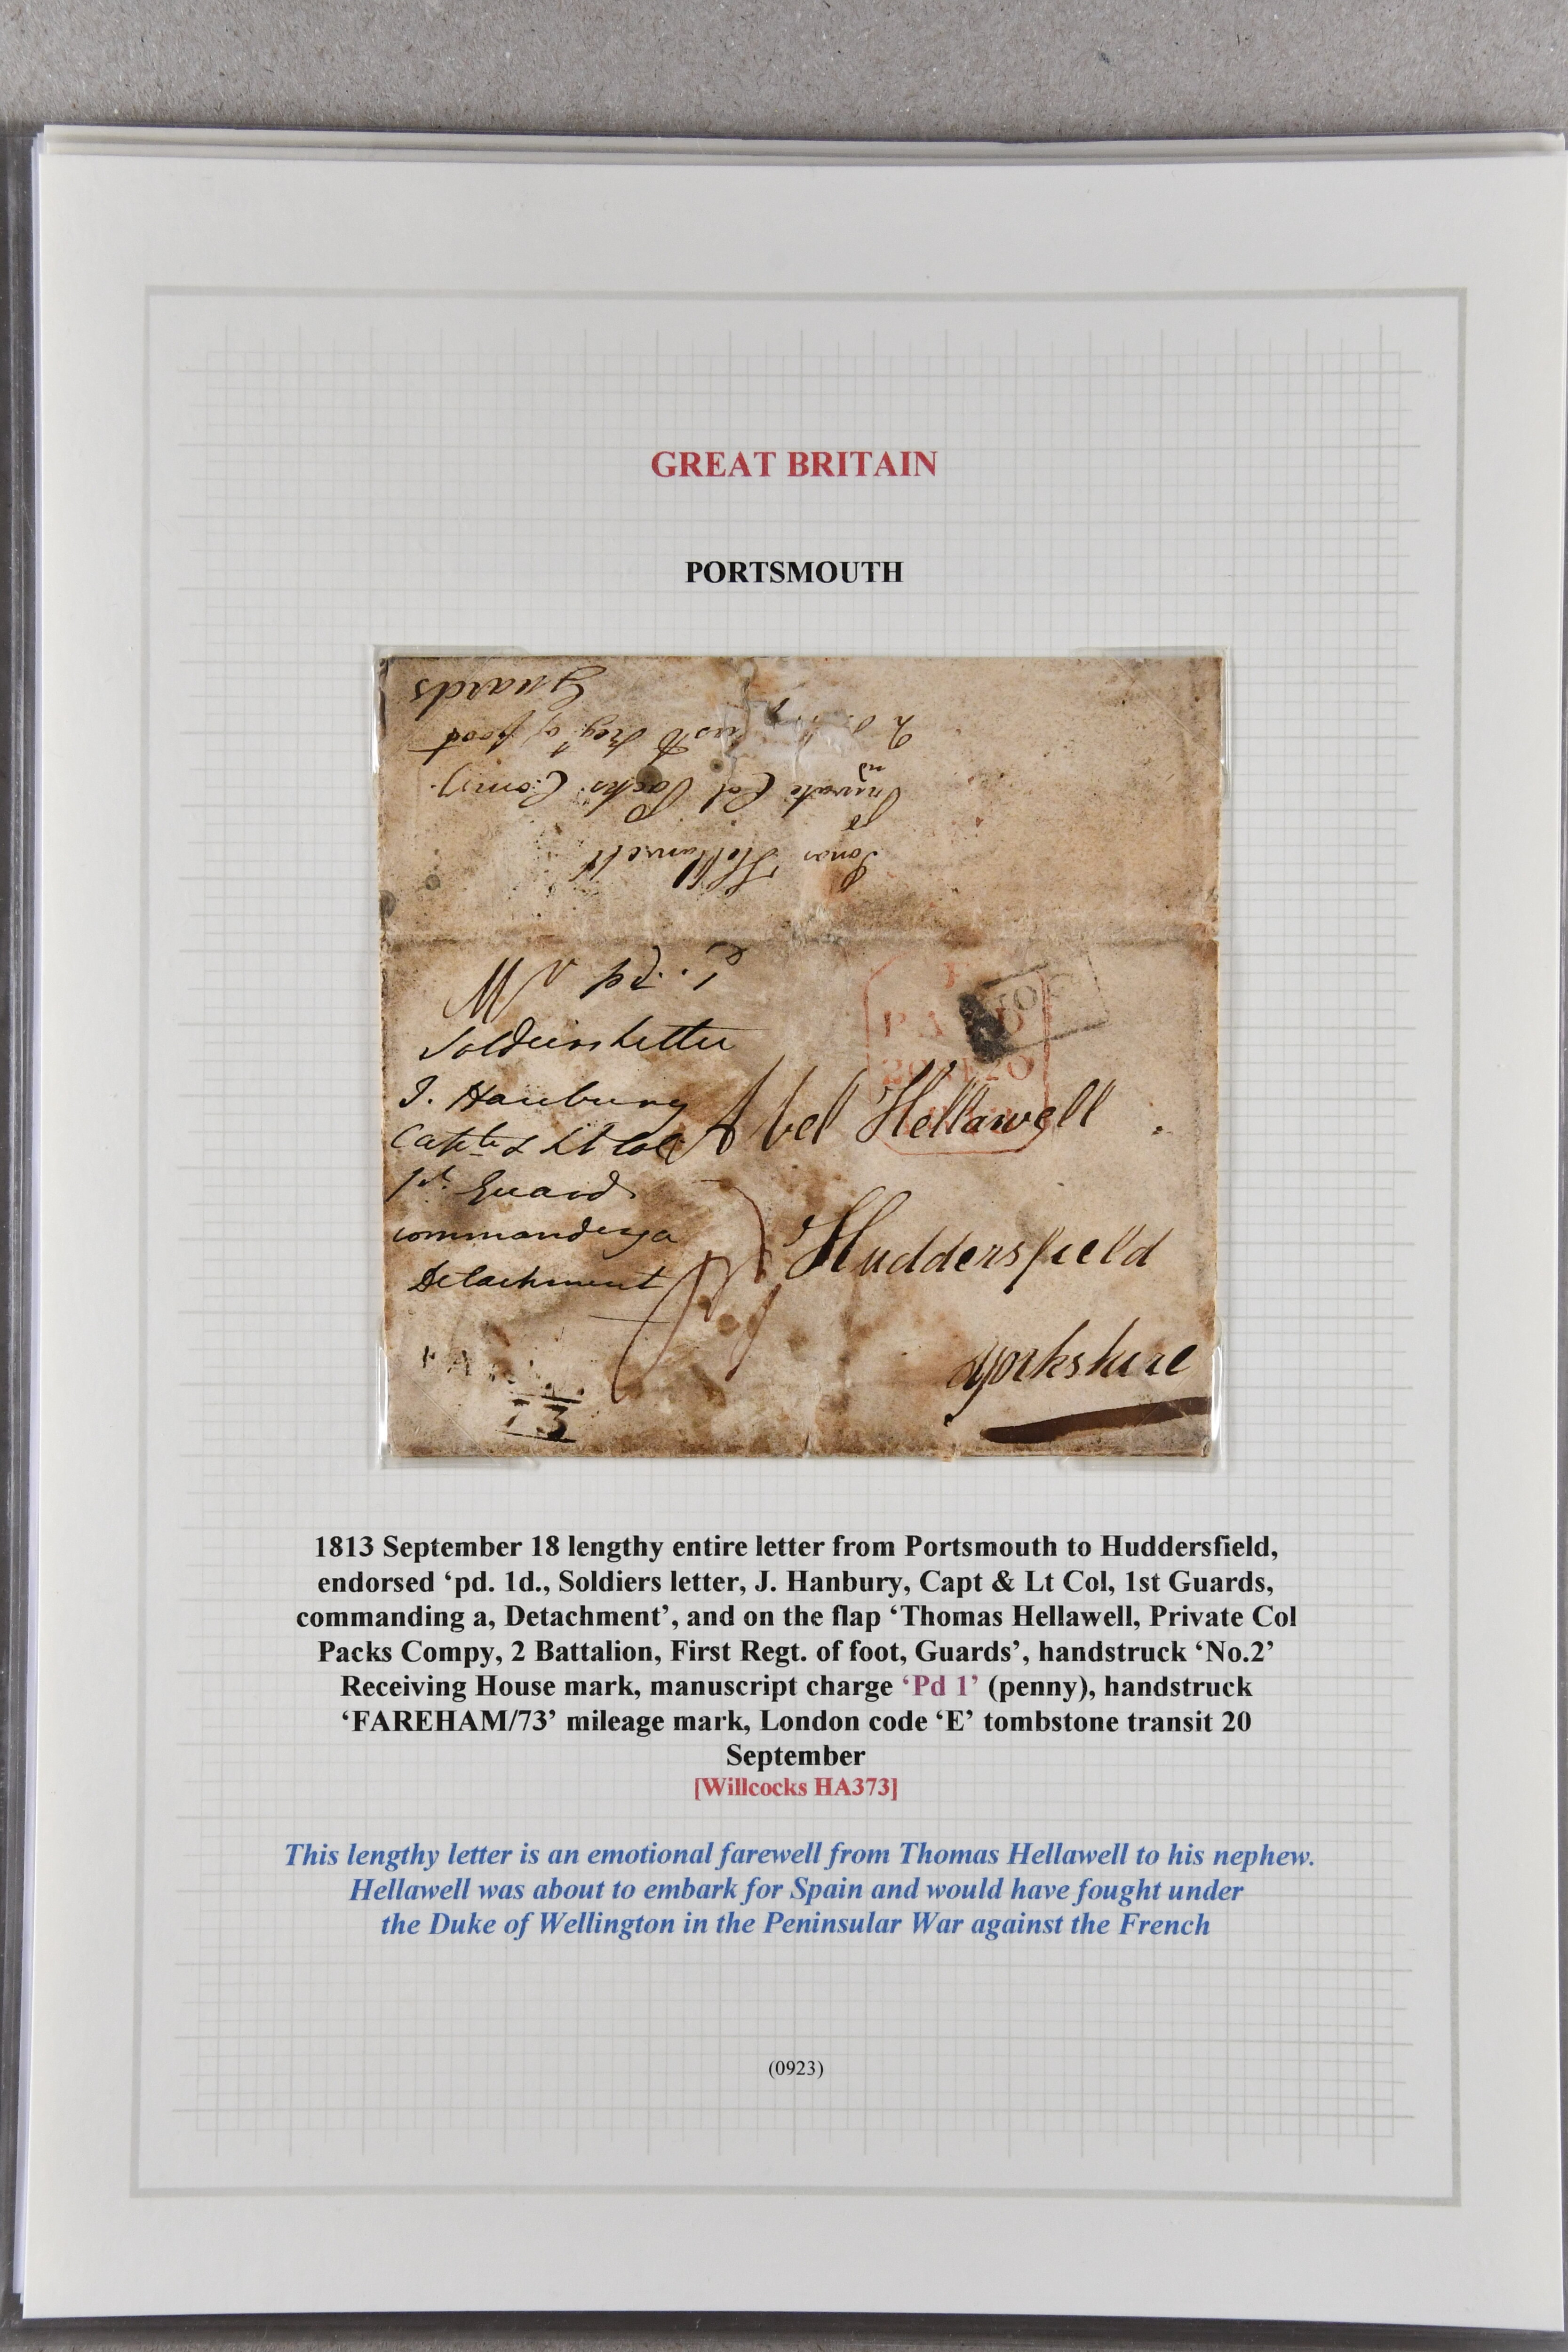 GREAT BRITAIN
PORTSMOUTH
Guards
2nd first Regt of foot
Private Col Packs Comy.
Hellawell
Mr pd
Soldiers Letter
J. Hanbury
Capt & Lt Col
1st Guards
commanding a
Detachment
PAID
No
Abel Hellawell
Huddersfield
Yorkshire
73
1813 September 18 lengthy entire letter from Portsmouth to Huddersfield,
endorsed ‘pd. 1d., Soldiers letter, J. Hanbury, Capt & Lt Col, 1st Guards,
commanding a, Detachment’, and on the flap ‘Thomas Hellawell, Private Col
Packs Compy, 2 Battalion, First Regt. of foot, Guards’, handstruck ‘No.2’
Receiving House mark, manuscript charge ‘Pd 1’ (penny), handstruck
‘FAREHAM/73’ mileage mark, London code ‘E’ tombstone transit 20
September
[Willcocks HA373]
This lengthy letter is an emotional farewell from Thomas Hellawell to his nephew.
Hellawell was about to embark for Spain and would have fought under
the Duke of Wellington in the Peninsular War against the French
(0923)